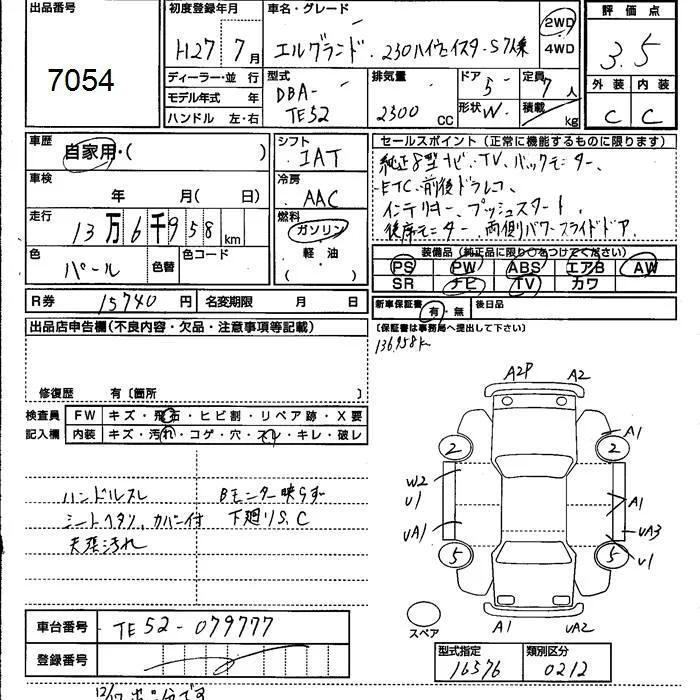 出品番号
7054
初度登録年月
H27 7月
車名・グレード
エルグランド 230ハイウェイスターS 7人乗
2WD
4WD
評価点
3.5
外装 内装
C C
ディーラー・並行
モデル年式 年
ハンドル 左・右
型式
DBA-
TE52
排気量
2500 CC
ドア
5
形状 W
定員
7人
積載 kg
車歴
自家用・( )
車検
年 月( 日)
走行
13万6千958km
色
パール
色替
色コード
シフト
IAT
冷房
AAC
燃料
ガソリン
軽・油
( )
セールスポイント(正常に機能するものに限ります)
純正8型ナビ、TV、バックモニター、
ETC、前後ドラレコ、
インテリキー、プッシュスタート、
後席モニター、両側パワースライドドア、
装備品(純正品に限り○をつけてください)
PS PW ABS エアB AW
SR ナビ TV カワ
R券 15740円 名変期限 月 日
新車保証書 有・無 後日品
(保証書は事務局へ提出して下さい)
136,958k
出品店申告欄(不良内容・欠品・注意事項等記載)
修復歴 有〔箇所 〕
検査員
記入欄
FW キズ・飛石・ヒビ割・リペア跡・X要
内装 キズ・汚れ・コゲ・穴・スレ・キレ・破レ
ハンドルスレ Bモニター映らず
シートヘタリ、カバー付 下廻りS、C
天張汚れ
A2P A2
2 2
A1
W2
U1
A1
UA1
UA3
U1
5 5
A1 UA2
スペア
車台番号 TE52-079777
登録番号
型式指定 類別区分
16576 0212